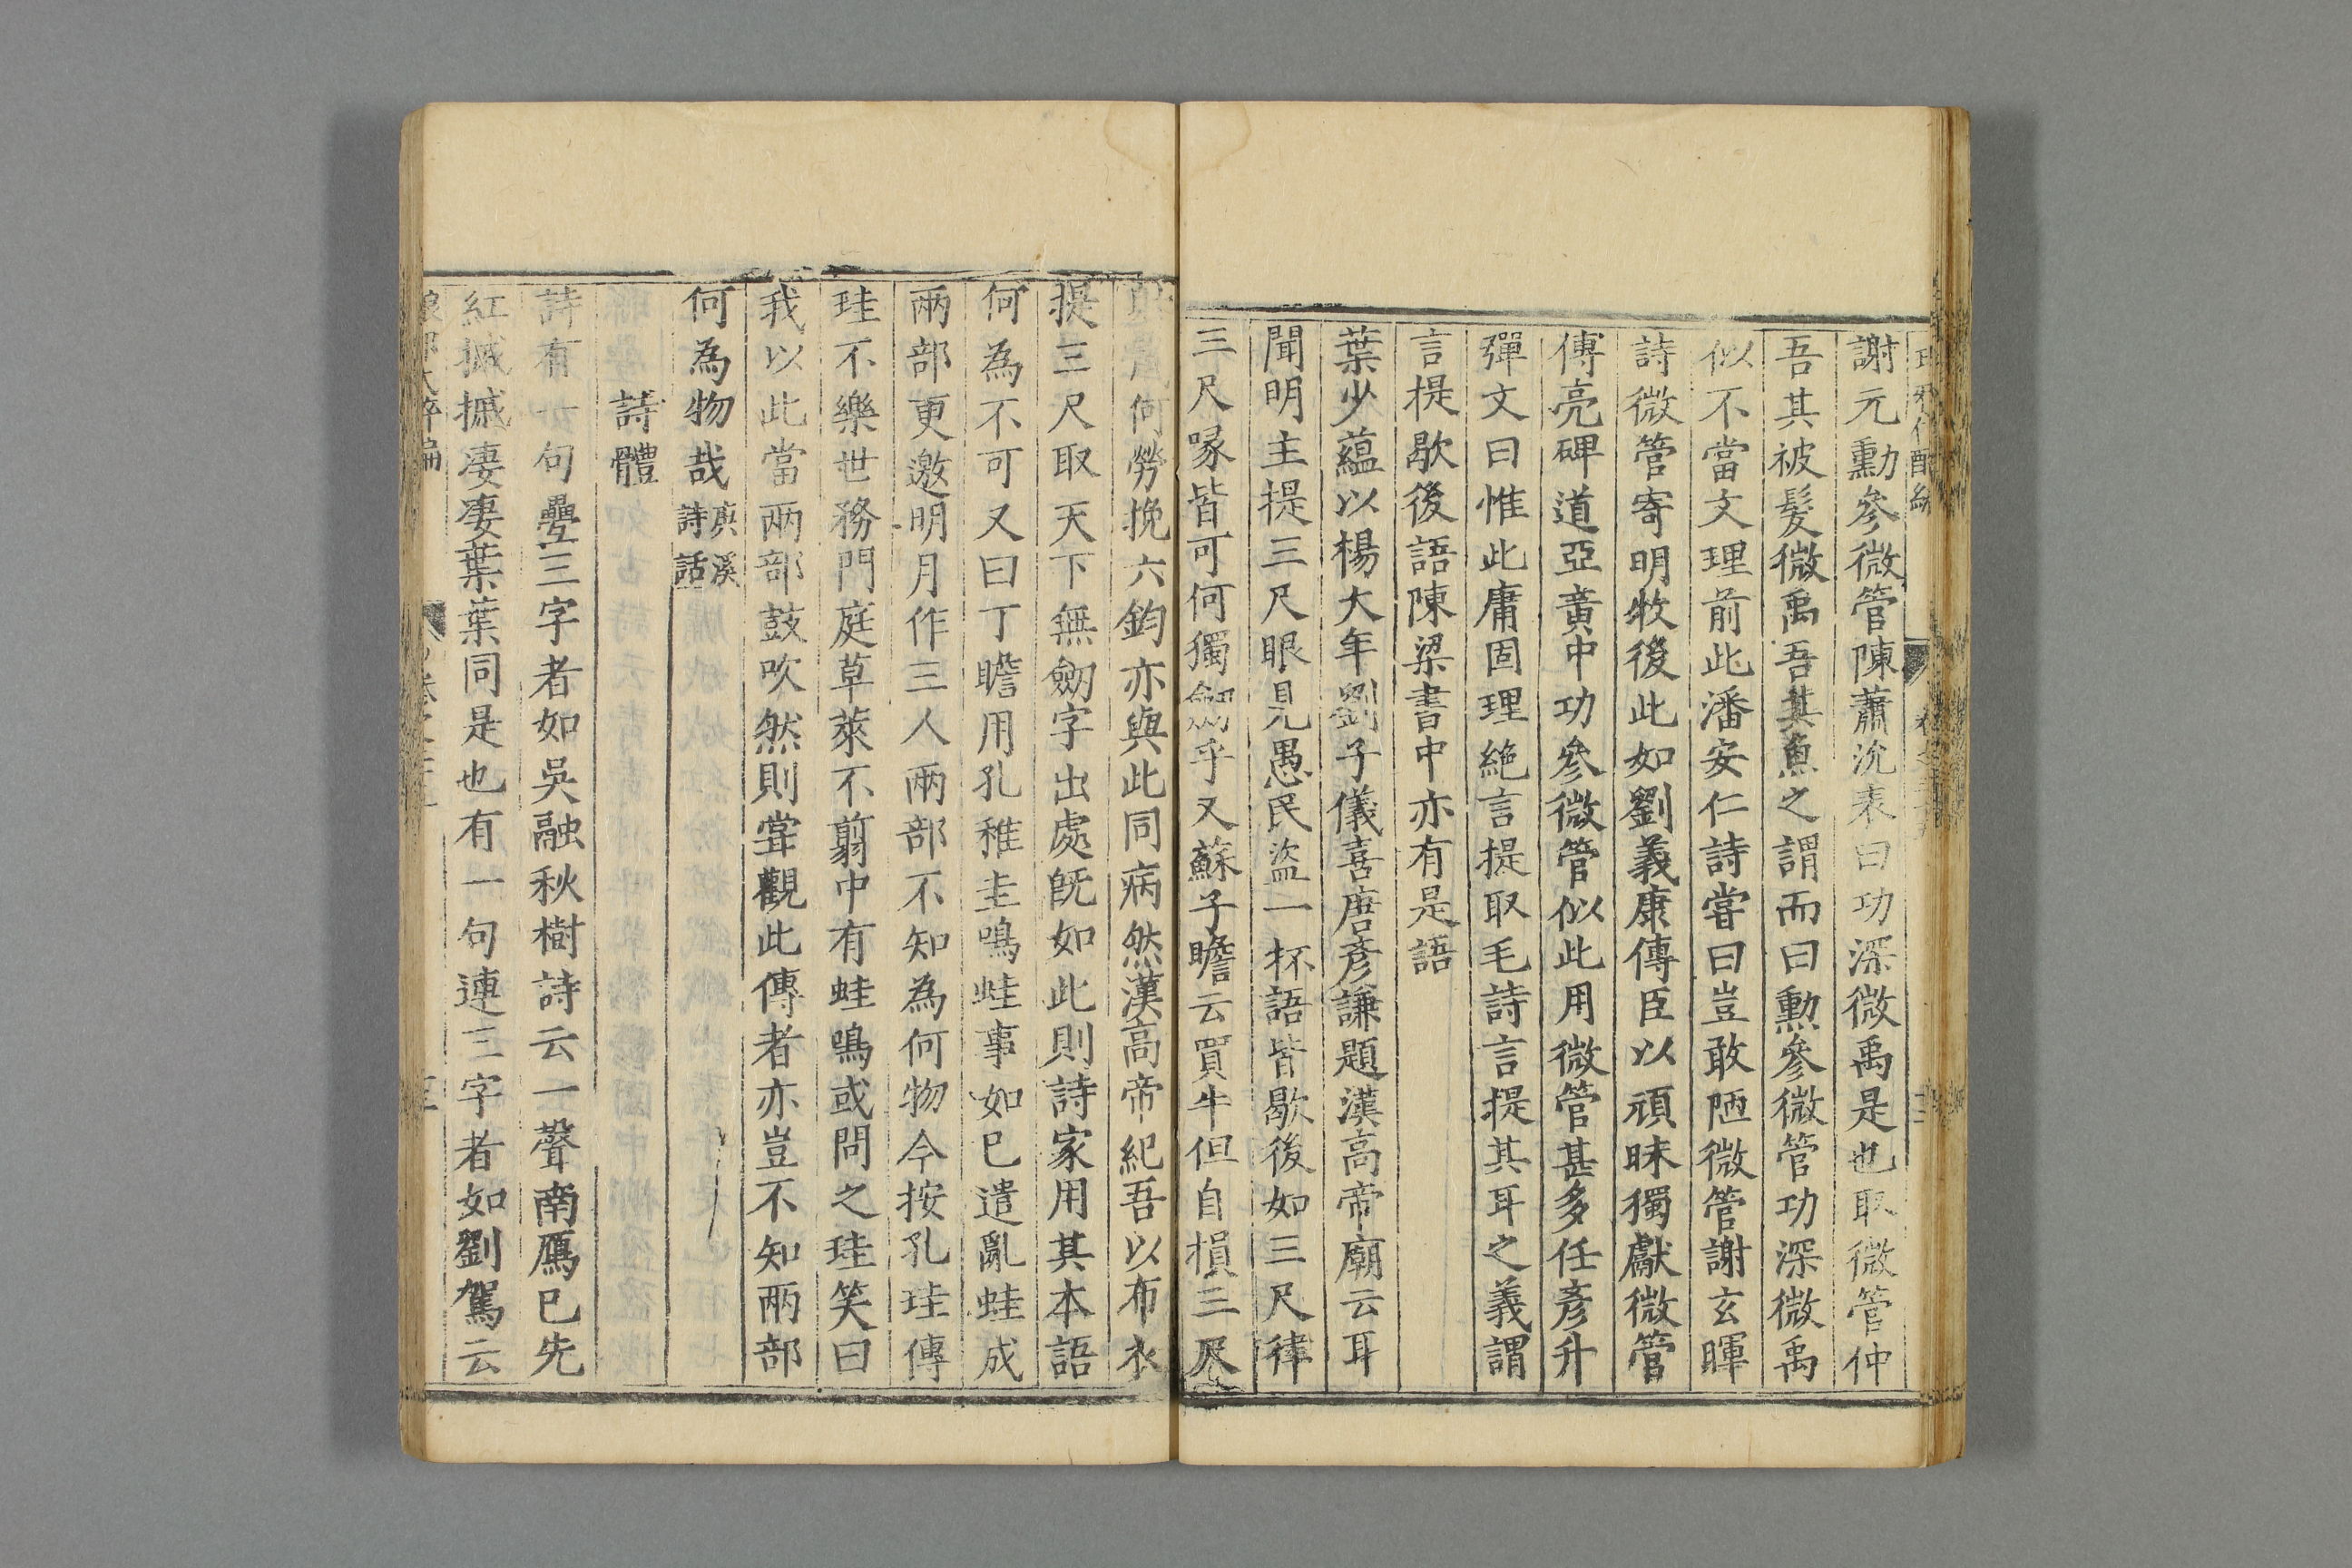 謝元勳參微管陳蕭沈表曰功深微禹是也取微管仲
吾其被髮微禹吾其魚之謂而曰勳參微管功深微禹
似不當文理前此潘安仁詩嘗曰豈敢陋微管謝玄暉
詩微管寄明牧後此如劉義康傳臣以頑昧獨獻微管
傅亮碑道亞黃中功參微管似此用微管甚多任彥升
彈文曰惟此庸固理絕言提取毛詩言提其耳之義謂
言提歇後語陳梁書中亦有是語
葉少蘊以楊大年劉子儀喜唐彥謙題漢高帝廟云耳
聞明主提三尺眼見愚民盜一杯語皆歇後如三尺律
三尺喙皆可何獨劒乎又蘇子瞻云買牛但自損三尺
射鼠何勞挽六鈞亦與此同病然漢高帝紀吾以布衣
提三尺取天下無劒字出處旣如此則詩家用其本語
何為不可又曰丁瞻用孔稚圭鳴蛙事如已遣亂蛙成
兩部更邀明月作三人兩部不知為何物今按孔珪傳
珪不樂世務門庭草萊不翦中有蛙鳴或問之珪笑曰
我以此當兩部鼓吹然則甞觀此傳者亦豈不知兩部
何為物哉庚溪詩話
詩體
詩有一句疊三字者如吳融秋樹詩云一聲南鴈已先
紅摵摵淒淒葉葉同是也有一句連三字者如劉駕云